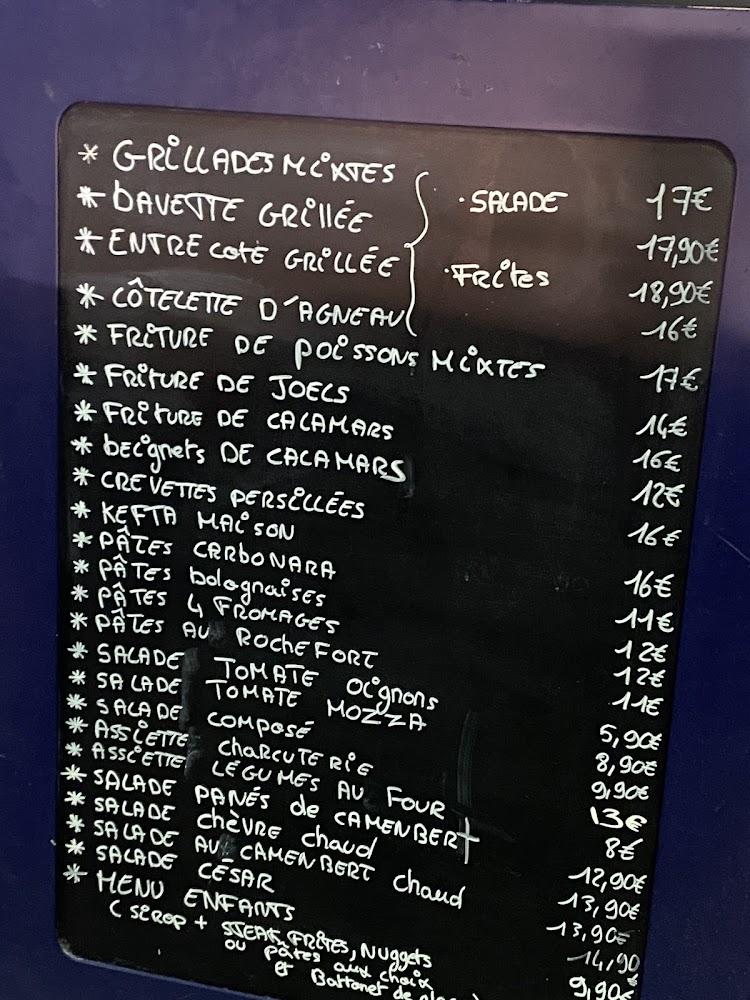 * GRILLADES MIXTES · SALADE 17€
* BAVETTE GRILLÉE 17,90€
* ENTRE COTÉ GRILLÉE · FRITES 18,90€
* CÔTELETTE D'AGNEAU 16€
* FRITURE DE POISSONS MIXTES 17€
* FRITURE DE JOELS 14€
* FRITURE DE CALAMARS 16€
* beignets DE CALAMARS 12€
* CREVETTES PERSILLÉES 16€
* KEFTA MAISON 16€
* PÂTES CARBONARA 11€
* PÂTES bolognaises 12€
* PÂTES 4 FROMAGES 12€
* PÂTES AU ROCHEFORT 11€
* SALADE TOMATE Oignons 5,90€
* SALADE TOMATE MOZZA 8,90€
* SALADE COMPOSÉ 9,90€
* ASSIETTE CHARCUTERIE 13€
* ASSIETTE LÉGUMES AU FOUR 8€
* SALADE PANÉS de CAMENBERT 12,90€
* SALADE CHÈVRE chaud 13,90€
* SALADE AU CAMENBERT chaud 13,90€
* SALADE CÉSAR 14,90
* MENU ENFANTS 9,90€
( SIROP + STEAK, FRITES, Nuggets
ou pâtes aux choix
et Battonet de